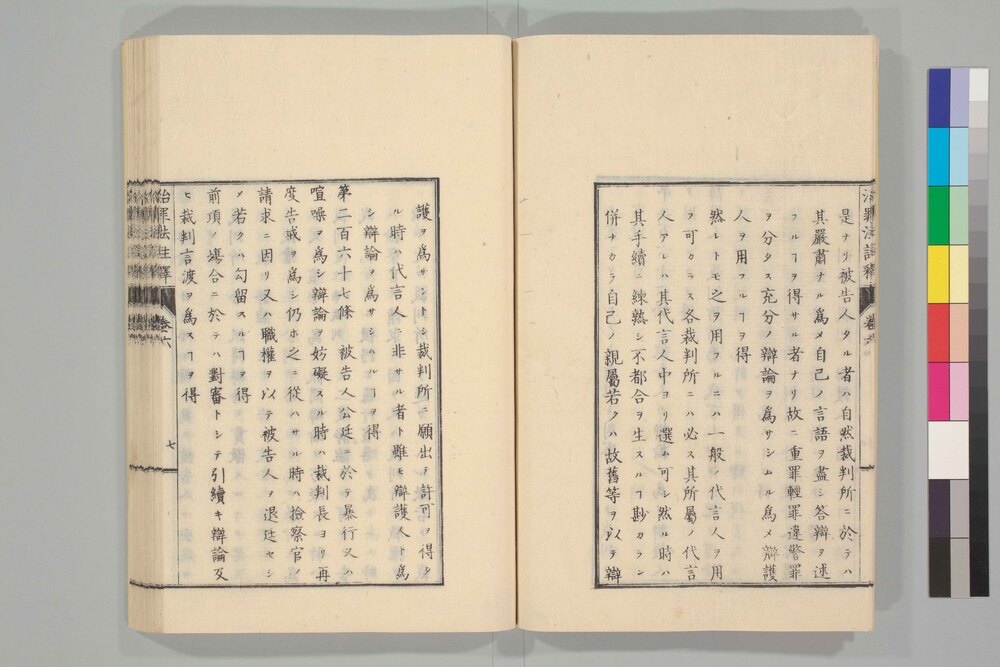 是ナリ被告人タル者ハ自然裁判所ニ於テハ
其嚴肅ナル爲メ自己ノ言語ヲ盡シ答辯ヲ述
フルヿヲ得サル者ナリ故ニ重罪輕罪違警罪
ヲ分タス充分ノ辯論ヲ爲サシムル爲メ辯護
人ヲ用フルヿヲ得
然レトモ之ヲ用フルニハ一般ノ代言人ヲ用
フ可カラス各裁判所ニハ必ス其所屬ノ代言
人アレハ其代言人中ヨリ選ム可シ然ル時ハ
其手續ニ練熟シ不都合ヲ生スルヿ尠カラン
併ナカラ自己ノ親屬若クハ故舊等ヲ以テ辯
治罪法註釋 卷六
護ヲ爲サントシ裁判所ニ願出テ許可ヲ得タ
ル時ハ代言人ニ非サル者ト雖モ辯護人ト爲
シ辯論ヲ爲サシムルヿヲ得
第二百六十七條 被告人公廷ニ於テ暴行又ハ
喧噪ヲ爲シ辯論ヲ妨礙スル時ハ裁判長ヨリ再
度告戒ヲ爲シ仍ホ之ニ從ハサル時ハ撿察官ノ
請求ニ因リ又ハ職權ヲ以テ被告人ヲ退廷セシ
メ若クハ勾留スルヿヲ得
前項ノ塲合ニ於テハ對審トシテ引續キ辯論及
ヒ裁判言渡ヲ爲スヿヲ得
治罪法註釋 卷六 七